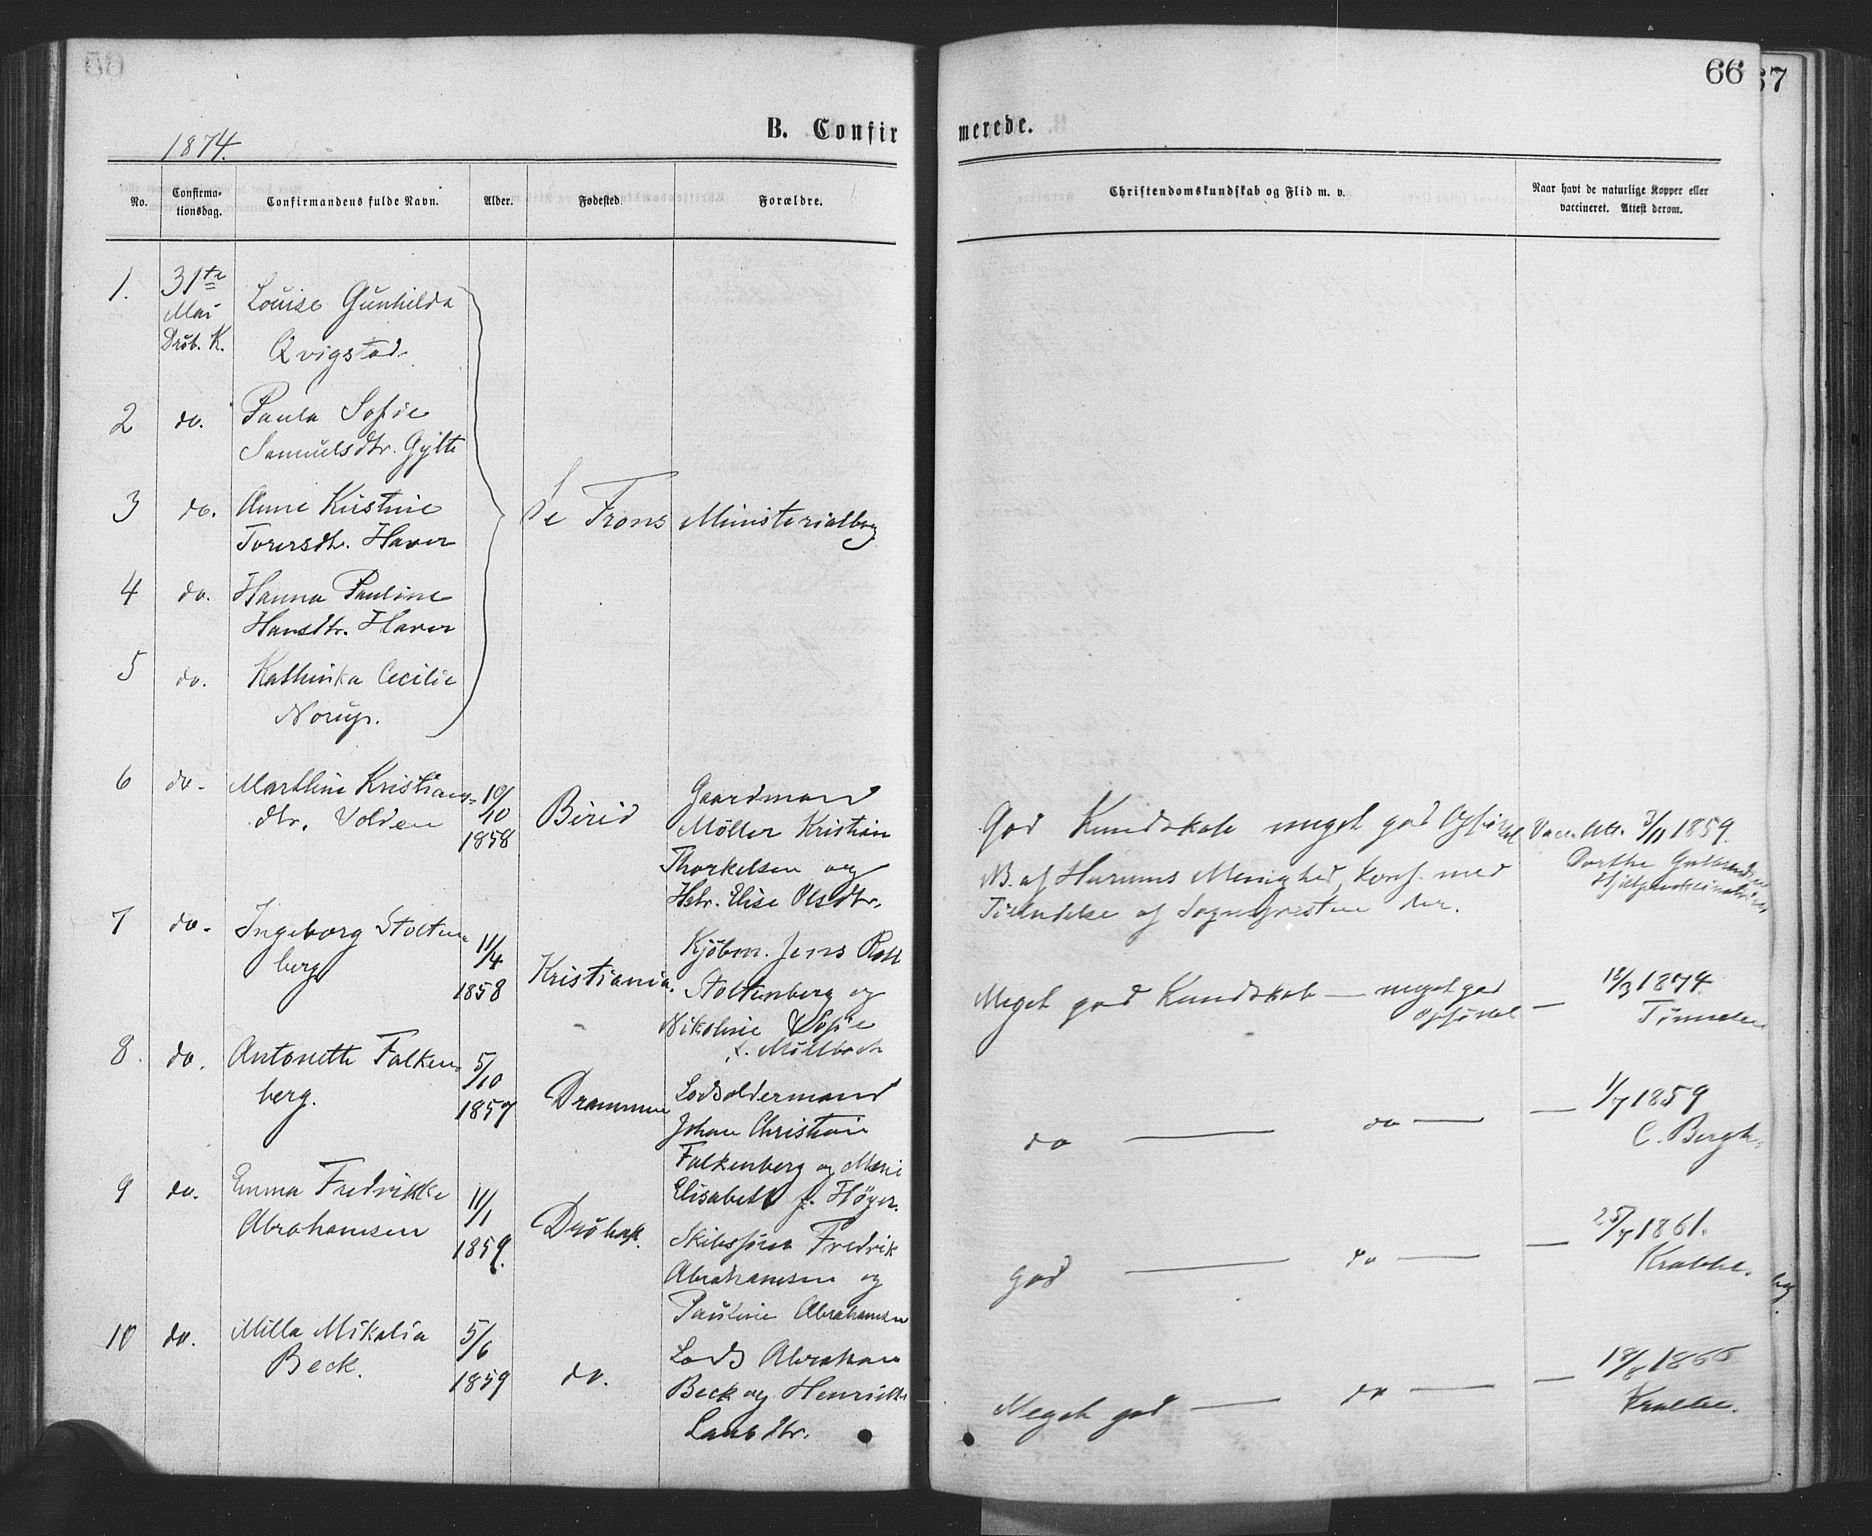 66
67
B. Confirmerede.
1874.
No.
Confirma-
tionsdag.
Confirmandens fulde Navn.
Alder.
Fødested.
Forældre.
Christendomskundskab og Flid m. v.
Naar havt de naturlige Kopper eller
vaccineret. Attest derom.
1. 31te Louise Gunhilda
Mai
Drøb. K. Qvigstad
2 do. Paula Sofie
Samuelsdtr. Gylte
3 do. Anne Kristine
Torersdtr. Haver
Se Frons Ministerialbog
4 do. Hanna Pauline
Hansdtr. Haver
5 do. Kathinka Cecilie
Norup.
6 do. Marthine Kristians-
dtr. Volden
10/10
1858
Birid
Gaardmand
Møller Kristian
Thorkelsen og
Hstr. Elise Olsdtr.
God Kundskab meget god Opførsel
NB. af Hurums Menighed, konf. med
Tilladelse af Sognepresten der.
Vacc. Att. 3/11 1859.
Dorthe
7 do. Ingeborg Stolten-
berg
11/4
1858
Kristiania.
Kjøbm. Jens
Stoltenberg og
Nikoline Sofie
f. Møllbach
Meget god Kundskab — meget god
Opførsel —
18/3 1874.
8. do. Antonette Falken-
berg.
5/10
1857
Drammen
Lodsoldermand
Johan Christian
Falkenberg og Marie
Elisabeth f. Høyer.
do — do — —
1/7 1859
C. Bergh
9 do. Emma Fredrikke
Abrahamsen
11/1
1859.
Drøbak.
Skibsfører Fredrik
Abrahamsen og
Pauline Abrahamsen
god — do — —
25/7 1861.
Krabbe.
10 do. Milla Mikalia
Beck.
5/6
1859
do.
Lods Abraham
Beck og Henrikke
Meget god — do — —
Krabbe.